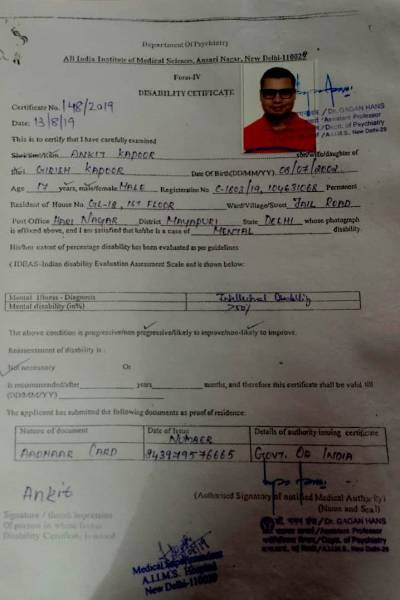 Department Of Psychiatry
All India Institute of Medical Sciences, Ansari Nagar, New Delhi-110029
Form-IV
DISABILITY CETIFICATE
Certificate No. 148/2019
Date: 13/8/19
Dr. GAGAN HANS
Assistant Professor
Deptt. of Psychiatry
A.I.I.M.S., New Delhi-29
This is to certify that I have carefully examined
Shri/Smt/Kum ANKIT KAPOOR son/wife/daughter of
Shri GIRISH KAPOOR Date Of Birth(DD/MM/YY) 08/07/2002
Age 17 years, male/female MALE Registration No C-1803/19, 104631068 Permanent
Resident of House No. GL-18, 1ST FLOOR Ward/Village/Street JAIL ROAD
Post Office HARI NAGAR District MAYAPURI State DELHI whose photograph
is affixed above, and I am satisfied that he/she is a case of MENTAL disability.
His/her extent of percentage disability has been evaluated as per guidelines
( IDEAS-Indian disability Evaluation Assessment Scale and is shown below:
Mental Illness - Diagnosis Intellectual Disability
Mental disability (in%) >50%
The above condition is progressive/non-progressive/likely to improve/non-likely to improve.
Reassessment of disability is :
Not necessary Or
is recommended/after years months, and therefore this certificate shall be valid till
(DD/MM/YY)
The applicant has submitted the following documents as proof of residence:
Nature of document Date of Issue NUMBER Details of authority issuing certificate
AADHAAR CARD 943979576665 GOVT. OF INDIA
Ankit
(Authorised Signatory of notified Medical Authority)
(Name and Seal)
Signature / thumb impression
Of person in whose favour
Disability Certificate is issued
डा. गगन हंस/Dr. GAGAN HANS
Assistant Professor
Deptt. of Psychiatry
A.I.I.M.S., New Delhi-29
Medical Superintendent
A.I.I.M.S. Hospital
New Delhi-110029